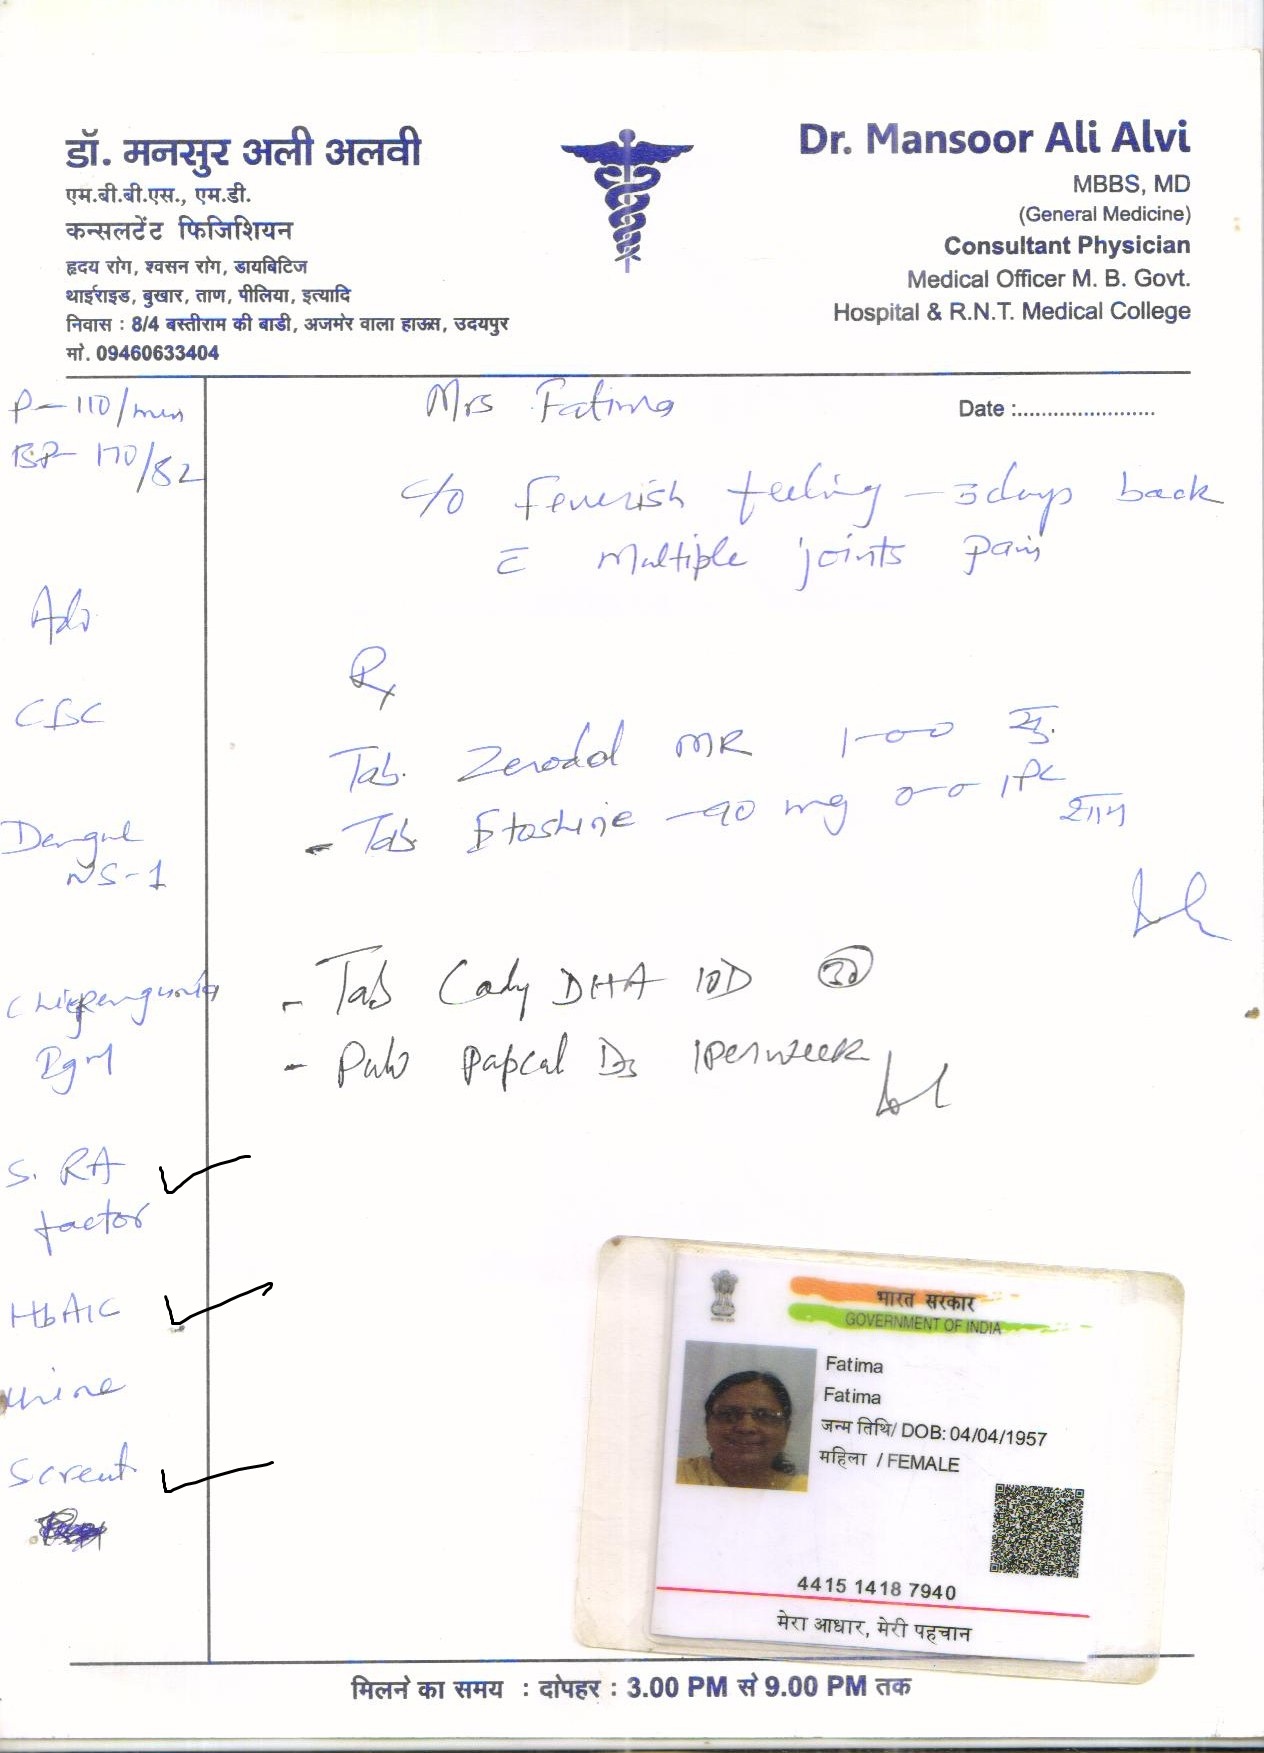 डॉ. मनसुर अली अलवी
एम.बी.बी.एस., एम.डी.
कन्सलटेंट फिजिशियन
हृदय रोग, श्वसन रोग, डायबिटिज
थाईराइड, बुखार, ताण, पीलिया, इत्यादि
निवास : 8/4 बस्तीराम की बाडी, अजमेर वाला हाऊस, उदयपुर
मो. 09460633404
Dr. Mansoor Ali Alvi
MBBS, MD
(General Medicine)
Consultant Physician
Medical Officer M. B. Govt.
Hospital & R.N.T. Medical College
P- 110/min
BP- 170/82
Adv
CBC
Dengue
NS-1
Chickengunia
IgM
S. RA
factor
HbA1C
Urine
S creat
Mrs Fatima
Date :
C/O Feverish feeling - 3 days back
c Multiple joints pain
Rx
Tab. Zerodol MR 1-0-0 सु.
- Tab. Etoshine -90 mg 0-0-1 PC शाम
- Tab Cady DHA 10D 30
- Pulv Papcal D3 1 per week
भारत सरकार
GOVERNMENT OF INDIA
Fatima
Fatima
जन्म तिथि/ DOB: 04/04/1957
महिला / FEMALE
4415 1418 7940
मेरा आधार, मेरी पहचान
मिलने का समय : दोपहर : 3.00 PM से 9.00 PM तक